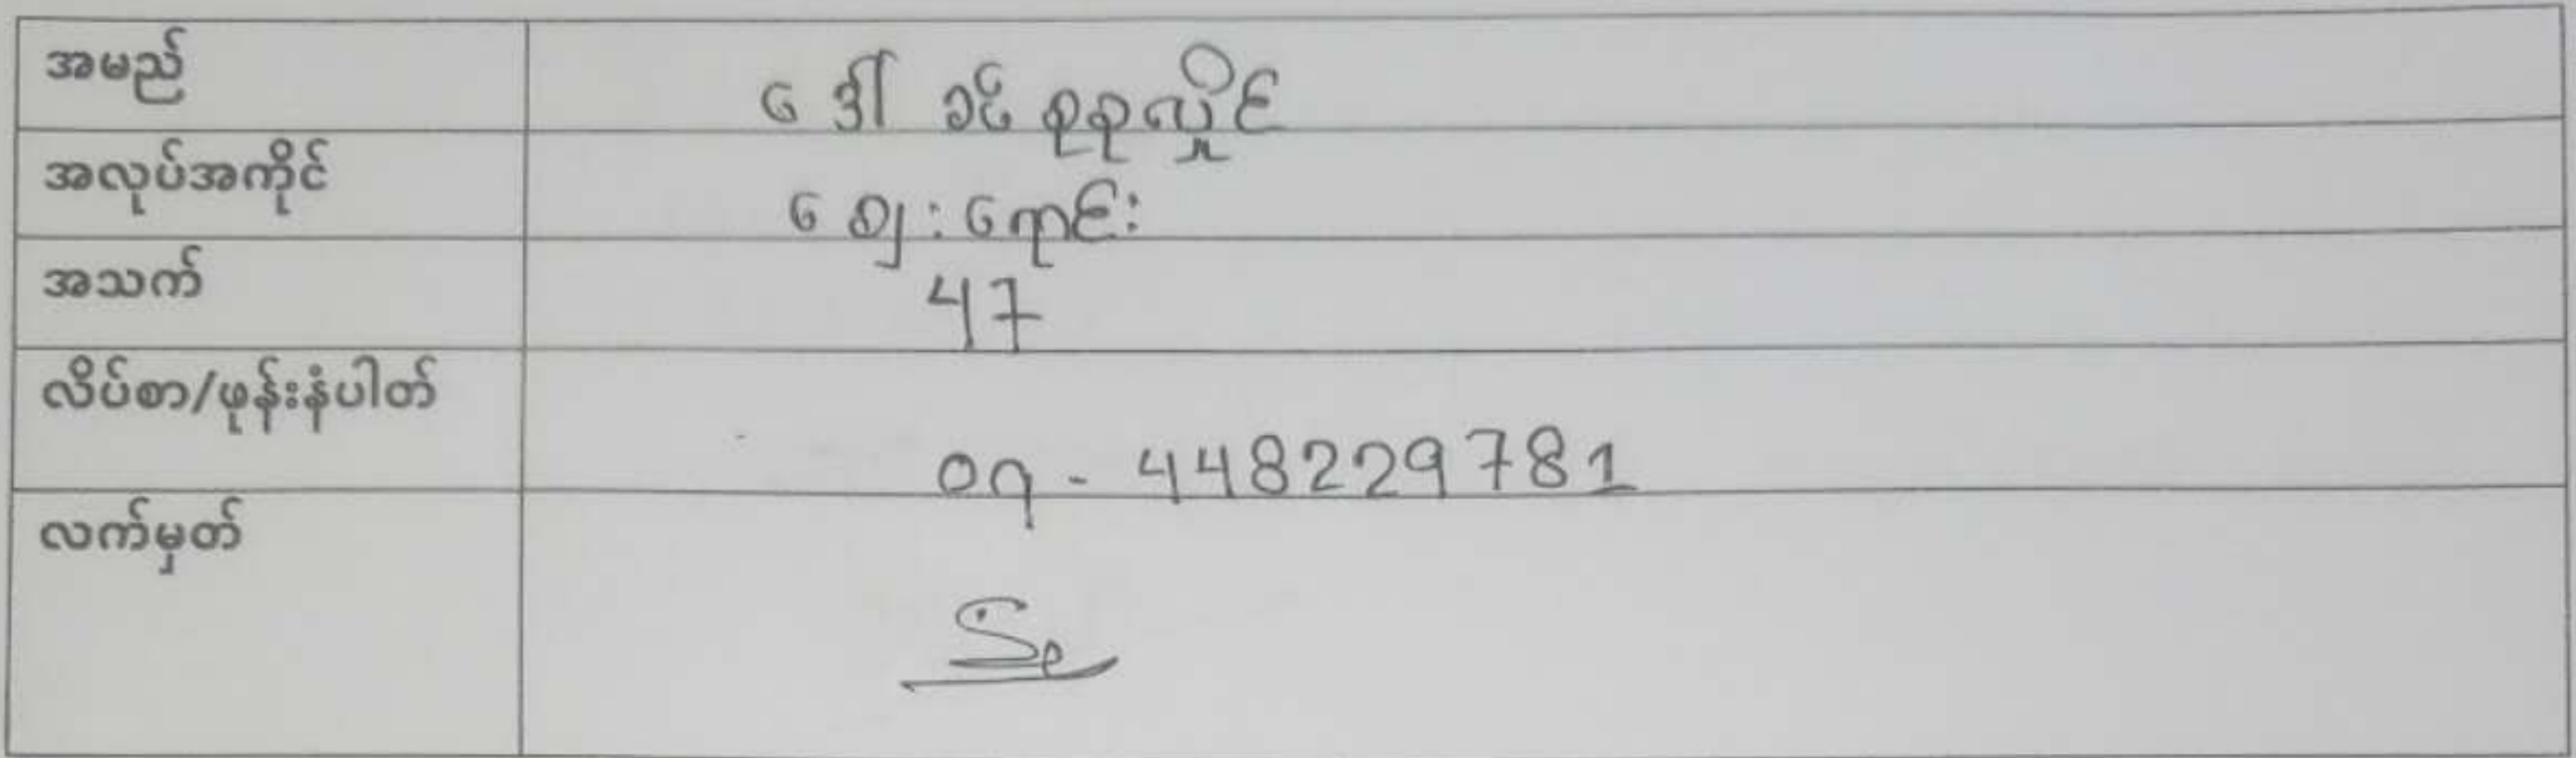 အမည် ဒေါ် ခင်စုစုလှိုင်
အလုပ်အကိုင် ဈေးရောင်း
အသက် 47
လိပ်စာ/ဖုန်းနံပါတ် 09 - 448229781
လက်မှတ်